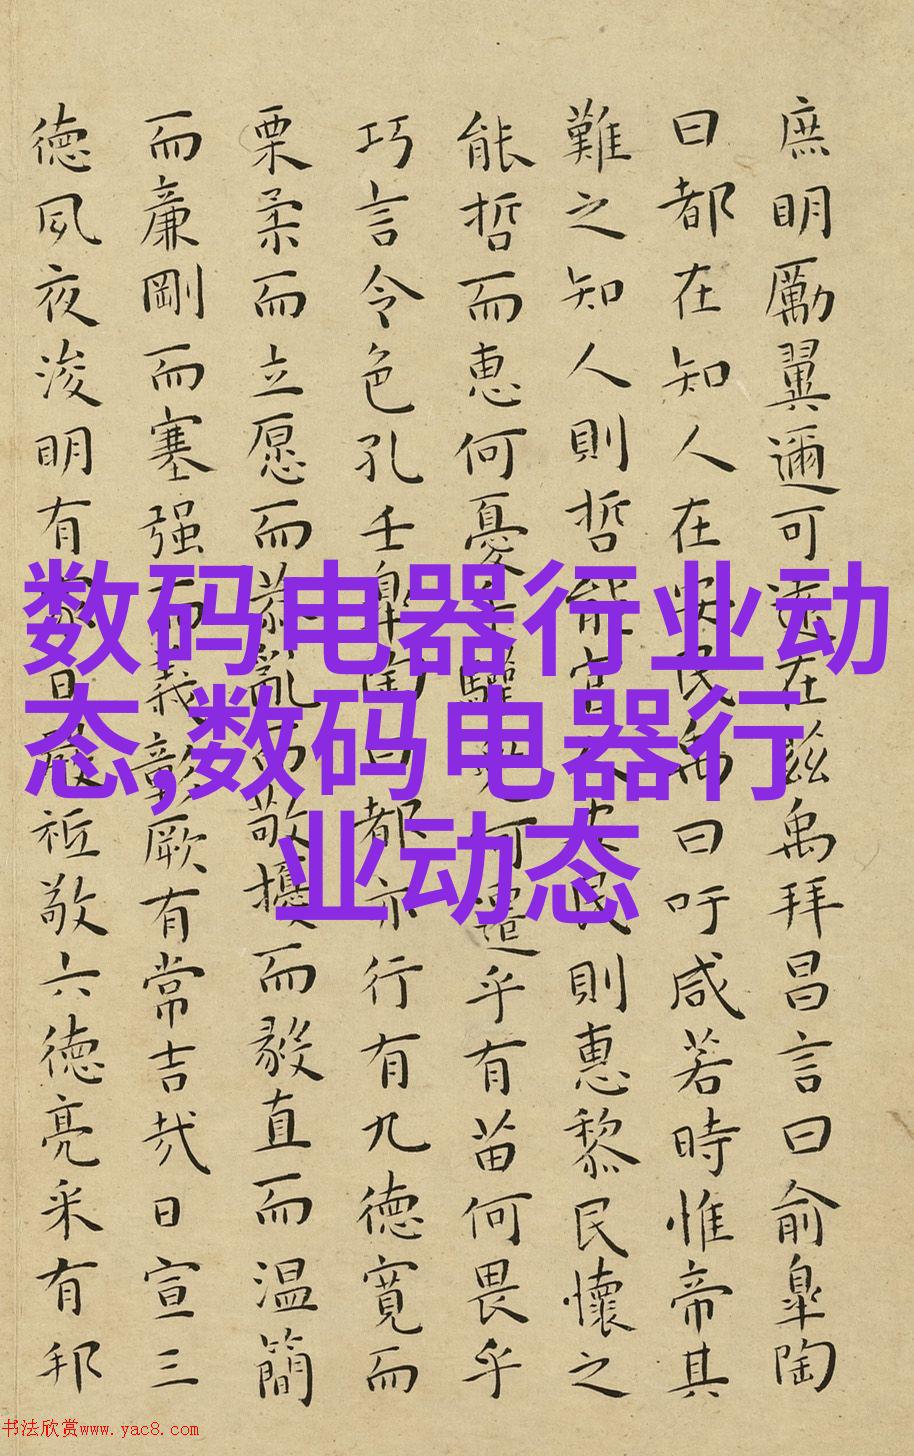 庶明勵翼邇可遠在茲禹拜昌言曰俞皐陶
曰都在知人在安民禹曰吁咸若時惟帝其
難之知人則哲能官人安民則惠黎民懷之
能哲而惠何憂乎驩兜何遷乎有苗何畏乎
巧言令色孔壬皐陶曰都亦行有九德寬而
栗柔而立愿而恭亂而敬擾而毅直而温簡
而廉剛而塞强而義彰厥有常吉哉日宣三
德夙夜浚明有家日嚴祗敬六德亮采有邦
数码电器行业动
态,数码电器行
业动态
书法欣赏www.yac8.com